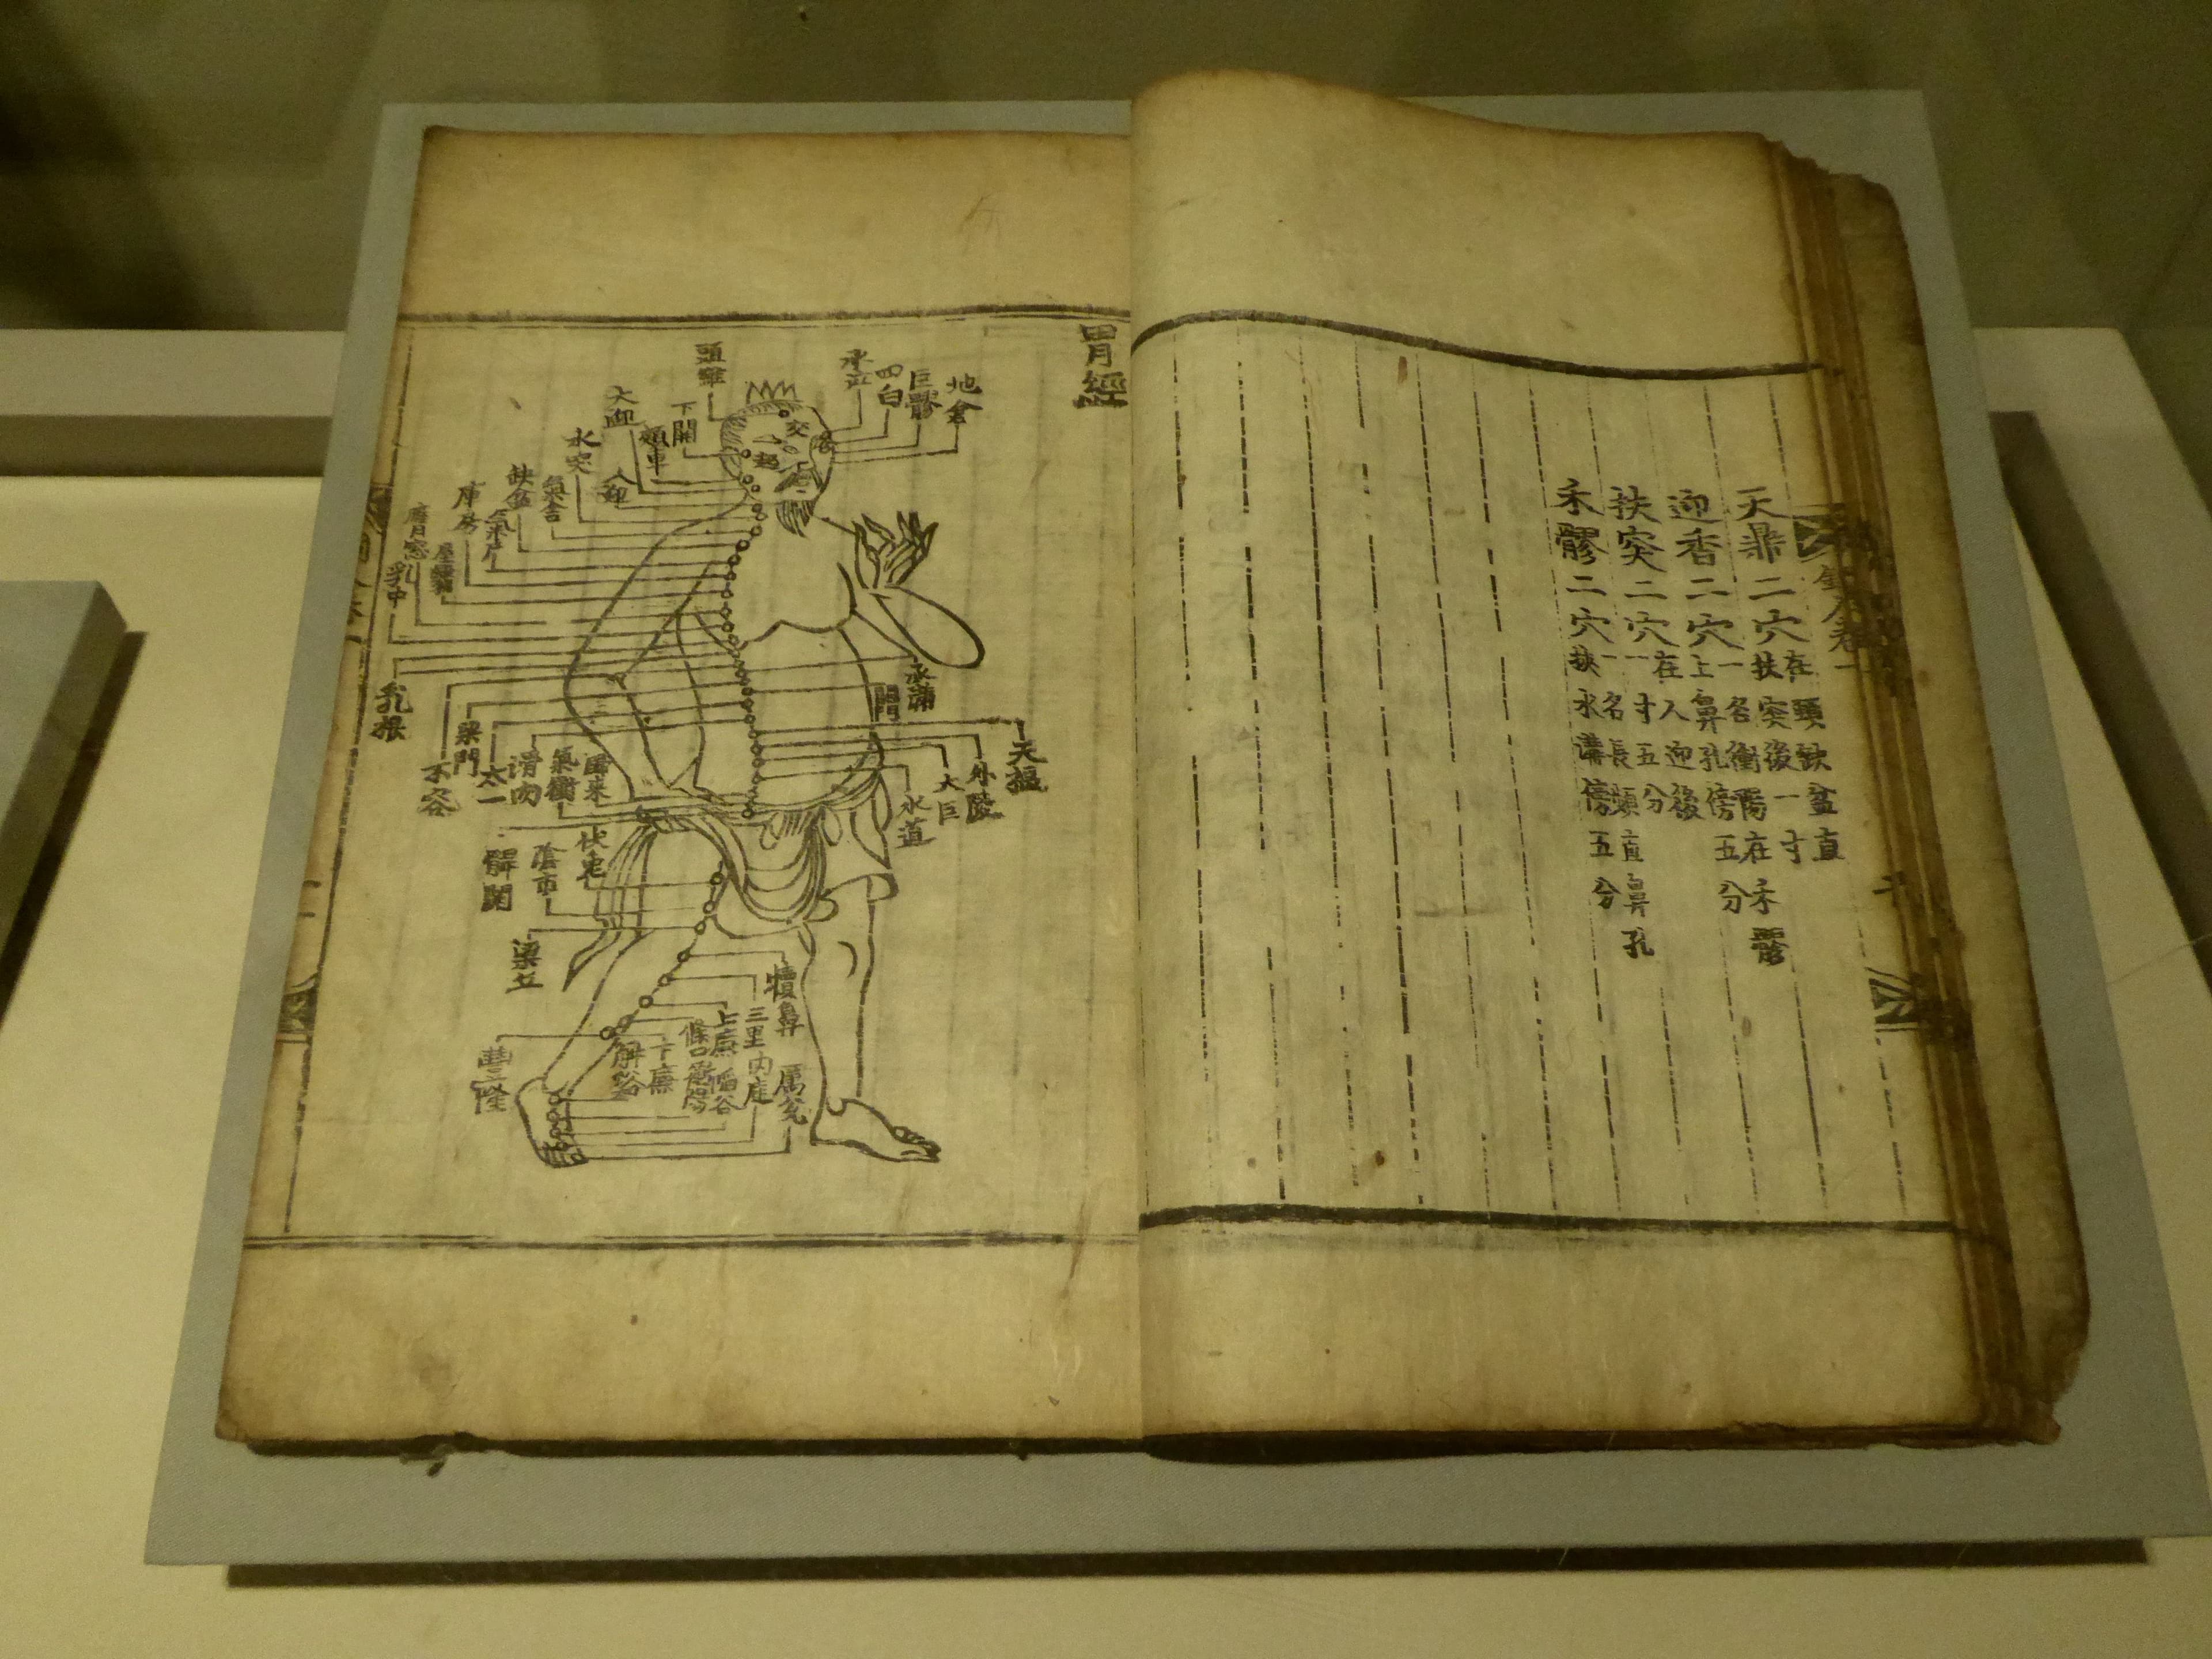 天鼎二穴在頸缺盆直扶突後一寸
迎香二穴一名衝陽在禾髎上鼻孔傍五分
扶突二穴在人迎後一寸五分
禾髎二穴一名長頻直鼻孔挾水溝傍五分
胃經
地倉
巨髎
四白
承泣
頭維
下關
頰車
大迎
人迎
水突
氣舍
缺盆
氣戶
庫房
屋翳
膺窓
乳中
乳根
承滿
不容
梁門
門
太一
滑肉
天樞
外陵
大巨
水道
歸來
氣衝
髀關
伏兎
陰市
梁丘
犢鼻
三里
上廉
條口
下廉
豐隆
解谿
衝陽
陷谷
内庭
厲兊